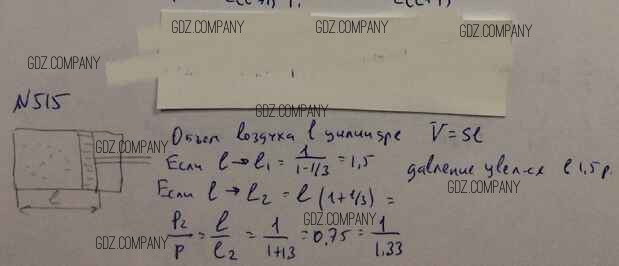 GDZ.COMPANY GDZ.COMPANY GDZ.COMPANY
GDZ.COMPANY
GDZ.COMPANY
N515
Объем воздуха в цилиндре V=Sl
GDZ.COMPANY
Если l→l₁ = 1/(1-1/3) = 1,5 давление увел-ся в 1,5 р.
GDZ.COMPANY
Если l→l₂ = l(1+1/3) =
GDZ.COMPANY
p₂/p = l/l₂ = 1/(1+13) = 0,75 = 1/1,33
GDZ.COMPANY
l